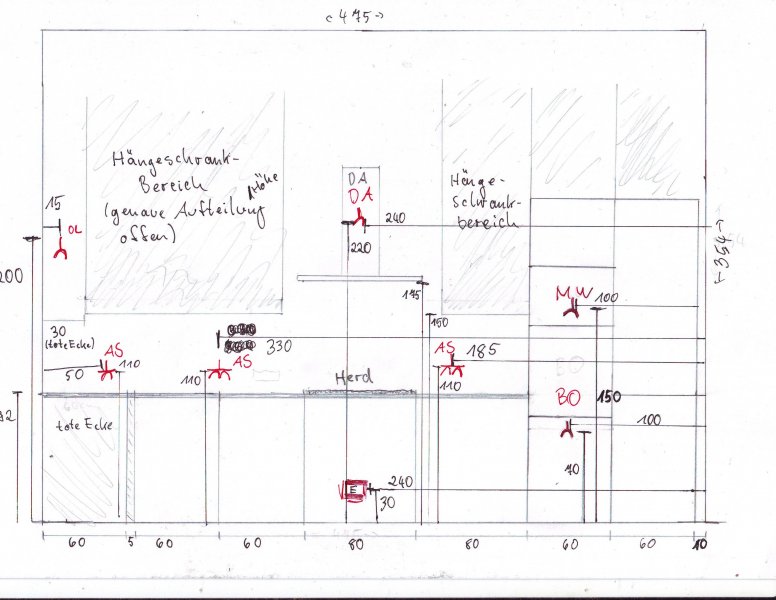 <475>
Hängeschrank-
Bereich
(genaue Aufteilung
Höhe
offen)
DA
DA
Hänge-
schrank-
bereich
15
OL
240
220
<354>
200
175
MW
100
150
30
(tote Ecke)
330
AS
110
50
110
AS
AS
185
110
Herd
BO
BO
150
92
tote Ecke
100
70
E
240
30
60
5
60
60
80
80
60
60
10